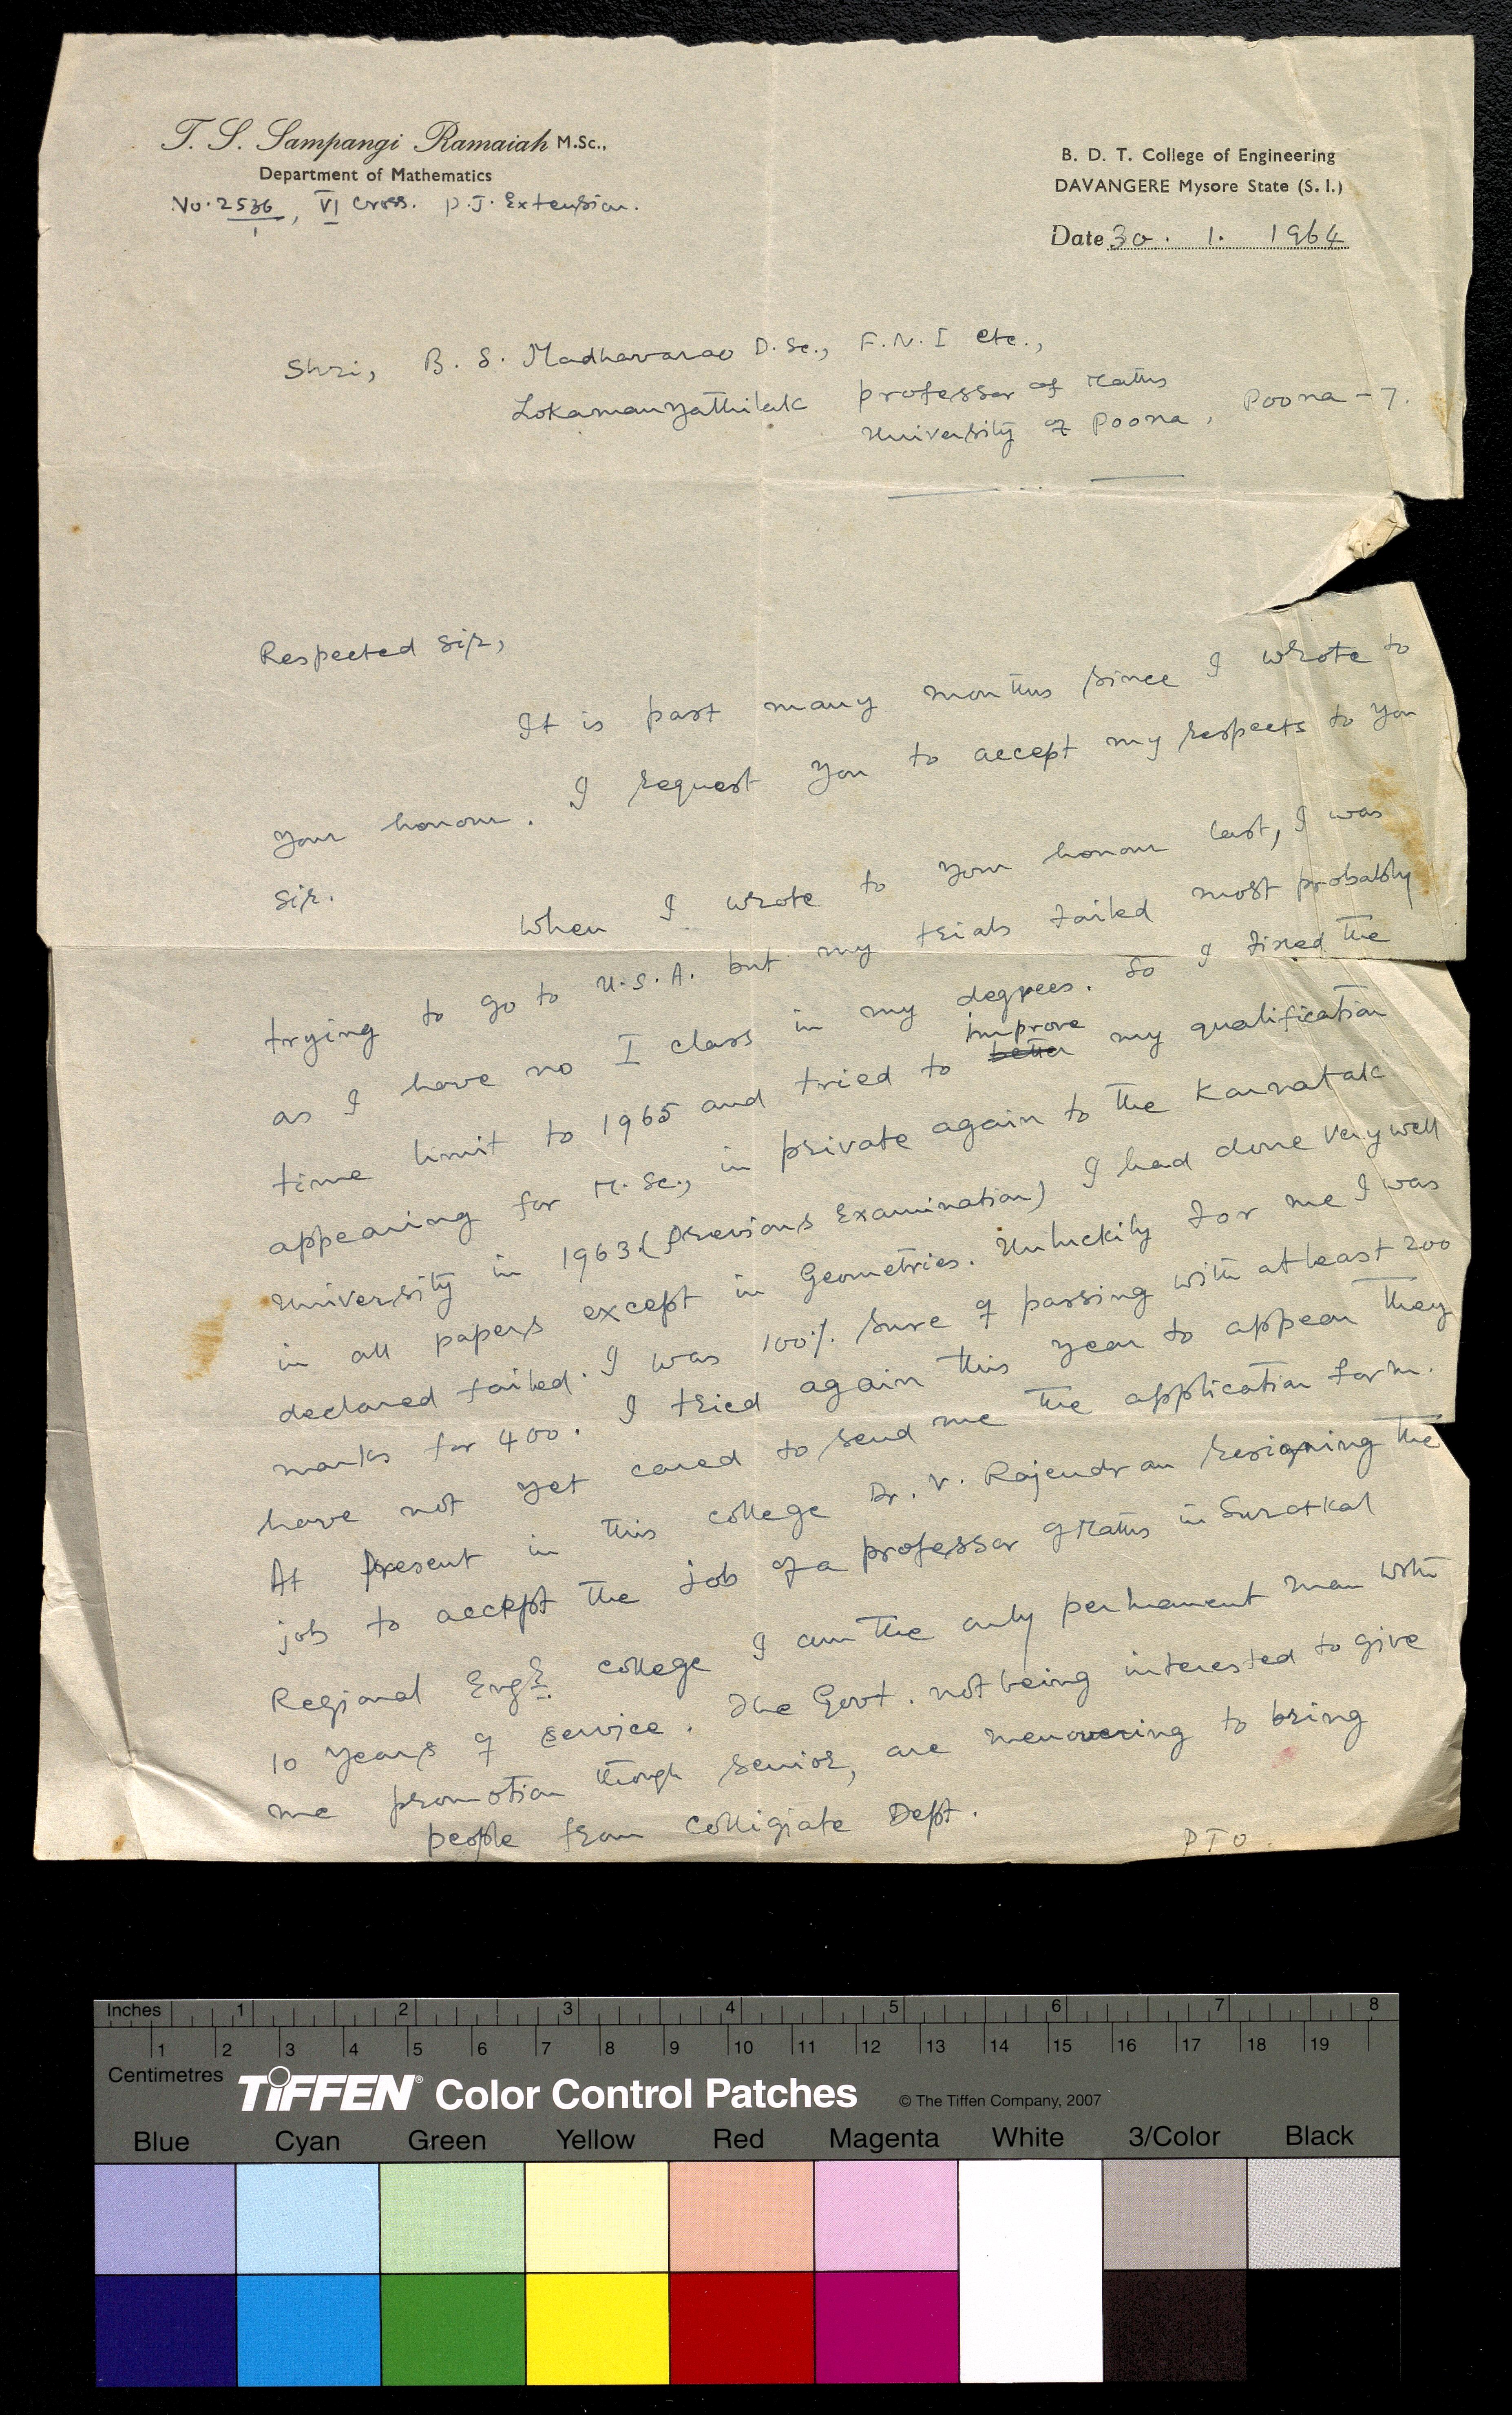 T. S. Sampangi Ramaiah M.Sc.,
Department of Mathematics
No. 2536/1, VI Cross. P.J. Extension.
B. D. T. College of Engineering
DAVANGERE Mysore State (S. I.)
Date 30. 1. 1964
Shri, B. S. Madhavarao D.Sc., F.N.I etc.,
Lokamanyathilak professor of Maths
University of Poona, Poona - 7.
Respected Sir,
It is past many months since I wrote to
your honour. I request you to accept my respects to you
Sir.
When I wrote to your honour last, I was
trying to go to U.S.A. but my trials failed most probably
as I have no I class in my degrees. So I fixed the
time limit to 1965 and tried to better improve my qualification
appearing for M.Sc., in private again to the Karnatak
University in 1963 (Previous Examination) I had done very well
in all papers except in Geometries. Unluckily for me I was
declared failed. I was 100% sure of passing with atleast 200
marks for 400. I tried again this year to appear they
have not yet cared to send me the application form.
At present in this college Dr. V. Rajendran resigning the
job to accept the job of a professor of Maths in Suratkal
Regional Engg. college I am the only permanent man with
10 years of service. The Govt. not being interested to give
me promotion though senior, are menovering to bring
people from Colligiate Dept.
PTO.
Inches 1 2 3 4 5 6 7 8
1 2 3 4 5 6 7 8 9 10 11 12 13 14 15 16 17 18 19
Centimetres
TIFFEN® Color Control Patches © The Tiffen Company, 2007
Blue Cyan Green Yellow Red Magenta White 3/Color Black